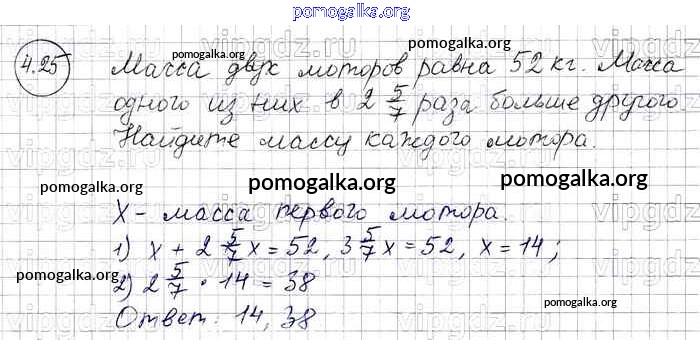 pomogalka.org
4.25 Масса двух моторов равна 52 кг. Масса
одного из них в 2 5/7 раза больше другого.
Найдите массу каждого мотора.
pomogalka.org
pomogalka.org
pomogalka.org
pomogalka.org
pomogalka.org
pomogalka.org
X - масса первого мотора.
1) x + 2 5/7 x = 52, 3 5/7 x = 52, x = 14;
pomogalka.org
2) 2 5/7 · 14 = 38
pomogalka.org
Ответ: 14, 38
pomogalka.org
vipgdz.ru